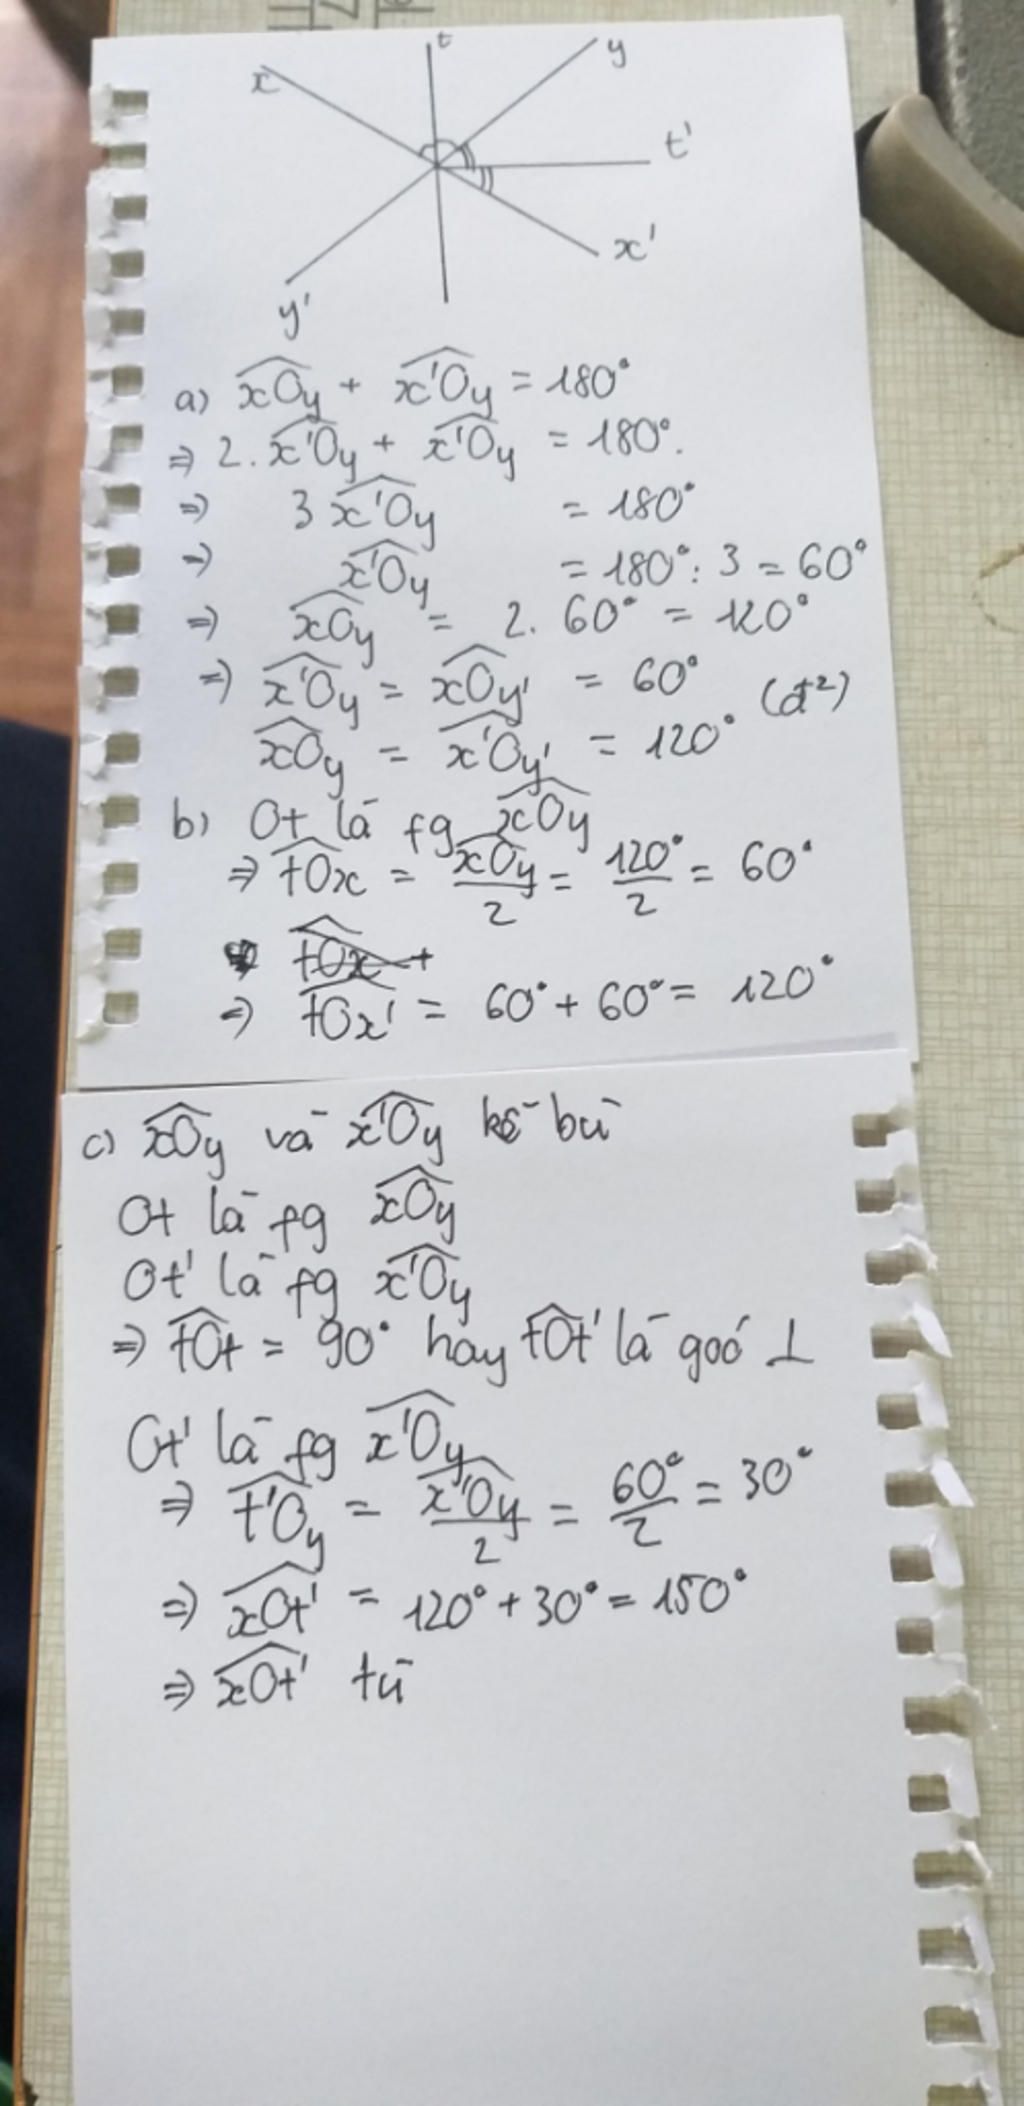 x
t
y
t'
x'
y'
a) xOy + x'Oy = 180°
=> 2. x'Oy + x'Oy = 180°.
=> 3 x'Oy = 180°
=> x'Oy = 180° : 3 = 60°
=> xOy = 2. 60° = 120°
=> x'Oy = xOy' = 60°
xOy = x'Oy' = 120° (đ²)
b) Ot là fg xOy
=> tOx = xOy/2 = 120°/2 = 60°
=> tOx' = 60° + 60° = 120°
c) xOy và x'Oy kề bù
Ot là fg xOy
Ot' là fg x'Oy
=> tOt = 90° hay tOt' là goó ⊥
Ot' là fg x'Oy
=> t'Oy = x'Oy/2 = 60°/2 = 30°
=> xOt' = 120° + 30° = 150°
=> xOt' tù